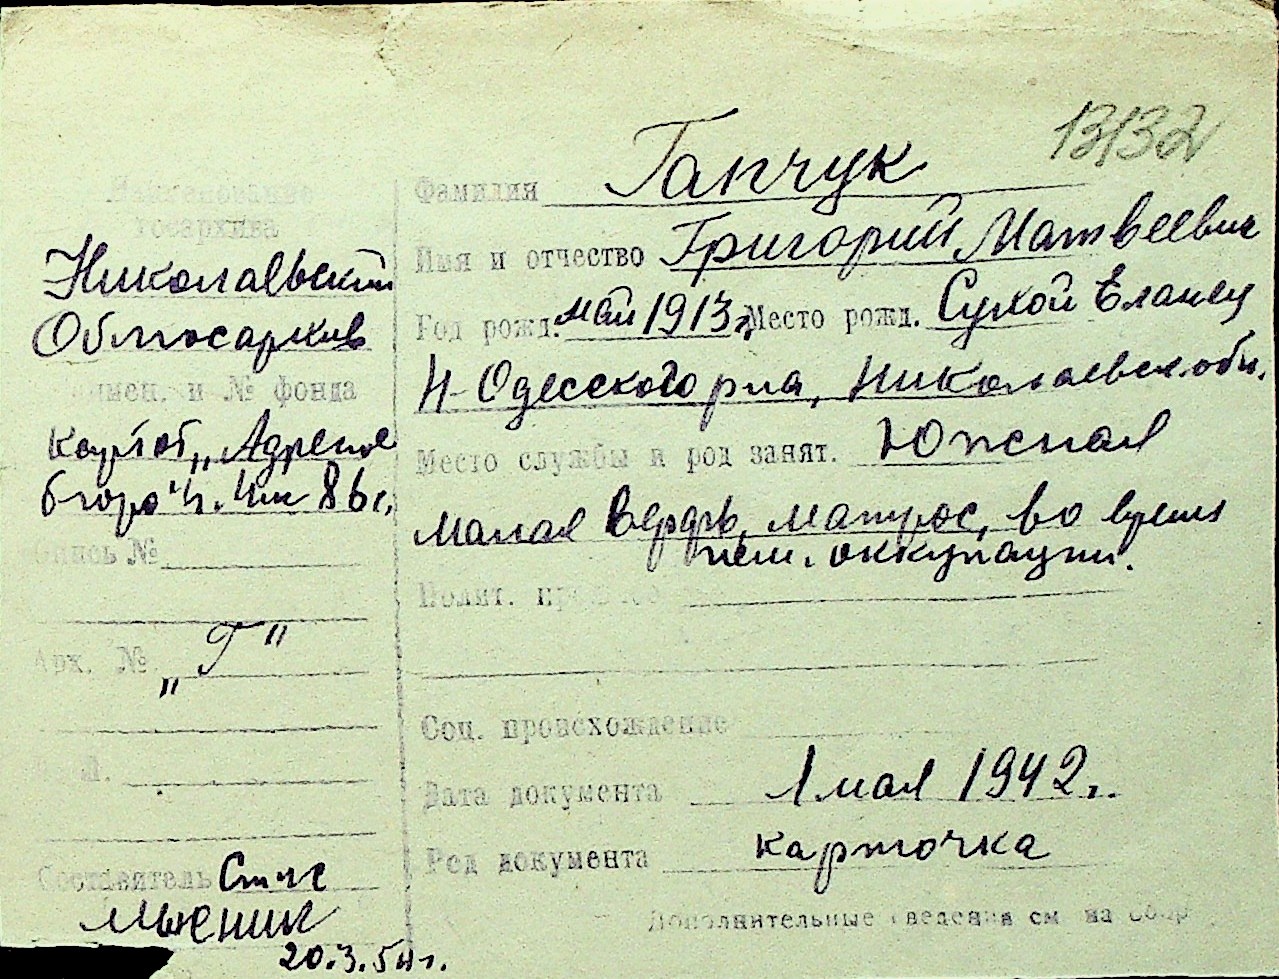 13132
Наименование
госархива
Николаевский
Облгосархив
Наимен. и № фонда
картот. „Адресное
бюро“ г. Ник
Опись №
Арх. № „Г“
Составитель Ст. н. с.
20.3.54 г.
Фамилия Гапчук
Имя и отчество Григорий Матвеевич
Год рожд. май 1913 г. Место рожд. Сухой Еланец
Н-Одесского р-на, Николаевск. обл.
Место службы и род занят. Южная
малая верфь, матрос, во время
нем. оккупации.
Полит. прошлое
Соц. происхождение
Дата документа 1 мая 1942 г.
Род документа карточка
Дополнительные сведения см. на обор